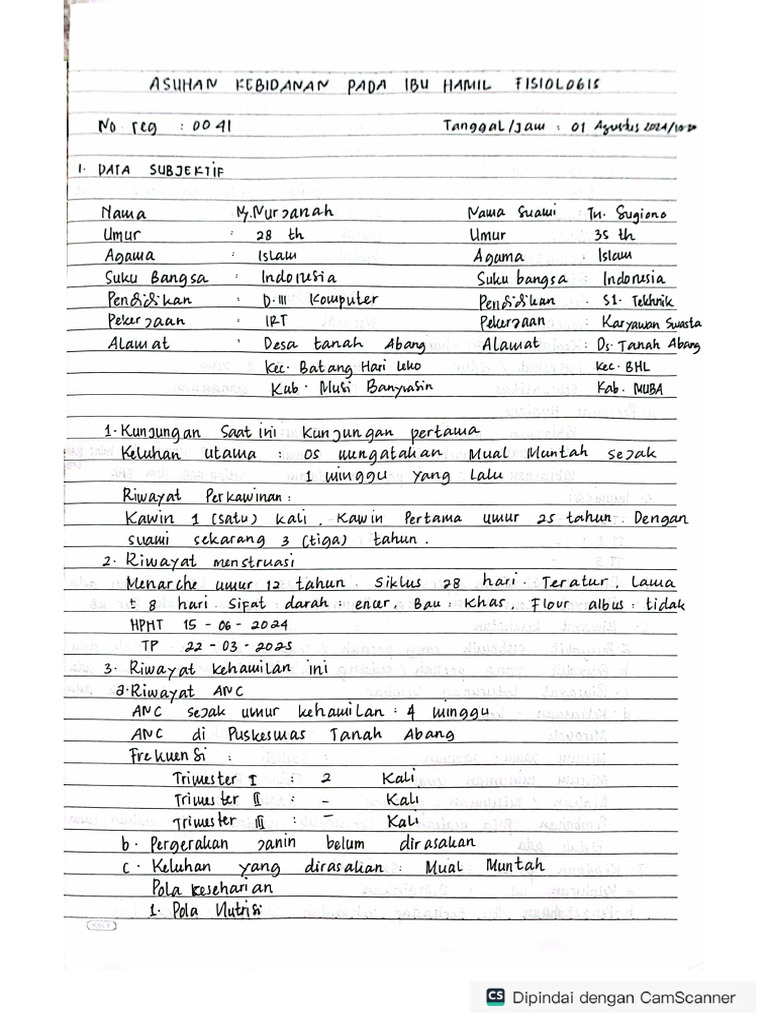 ASUHAN KEBIDANAN PADA IBU HAMIL FISIOLOGIS
No reg : 0041 Tanggal/Jam : 01 Agustus 2024/
1. DATA SUBJEKTIF
Nama Ny. Nurjanah Nama Suami Tn. Sugiono
Umur : 28 th Umur 35 th
Agama : Islam Agama : Islam
Suku Bangsa : Indonesia Suku bangsa : Indonesia
Pendidikan : D.III Komputer Pendidikan : S1. Tekhnik
Pekerjaan : IRT Pekerjaan : Karyawan Swasta
Alamat : Desa tanah Abang Alamat : Ds. Tanah Abang
Kec. Batang Hari Leko Kec. BHL
Kab. Musi Banyuasin Kab. MUBA
1. Kunjungan Saat ini Kunjungan pertama
Keluhan utama : Os mengatakan Mual Muntah sejak
1 minggu yang lalu
Riwayat Perkawinan :
Kawin 1 (satu) kali, Kawin Pertama umur 25 tahun. Dengan
suami sekarang 3 (tiga) tahun.
2. Riwayat menstruasi
Menarche umur 12 tahun. Siklus 28 hari. Teratur, Lama
± 8 hari. Sifat darah : encer, Bau : Khas, Flour albus : tidak
HPHT 15 - 06 - 2024
TP 22 - 03 - 2025
3. Riwayat kehamilan ini
a. Riwayat ANC
ANC sejak umur kehamilan : 4 minggu
ANC di Puskesmas Tanah Abang
Frekuensi :
Trimester I : 2 Kali
Trimester II : - Kali
Trimester III : - Kali
b. Pergerakan janin belum dirasakan
c. Keluhan yang dirasakan : Mual Muntah
Pola keseharian
1. Pola Nutrisi
KIKY
CS Dipindai dengan CamScanner